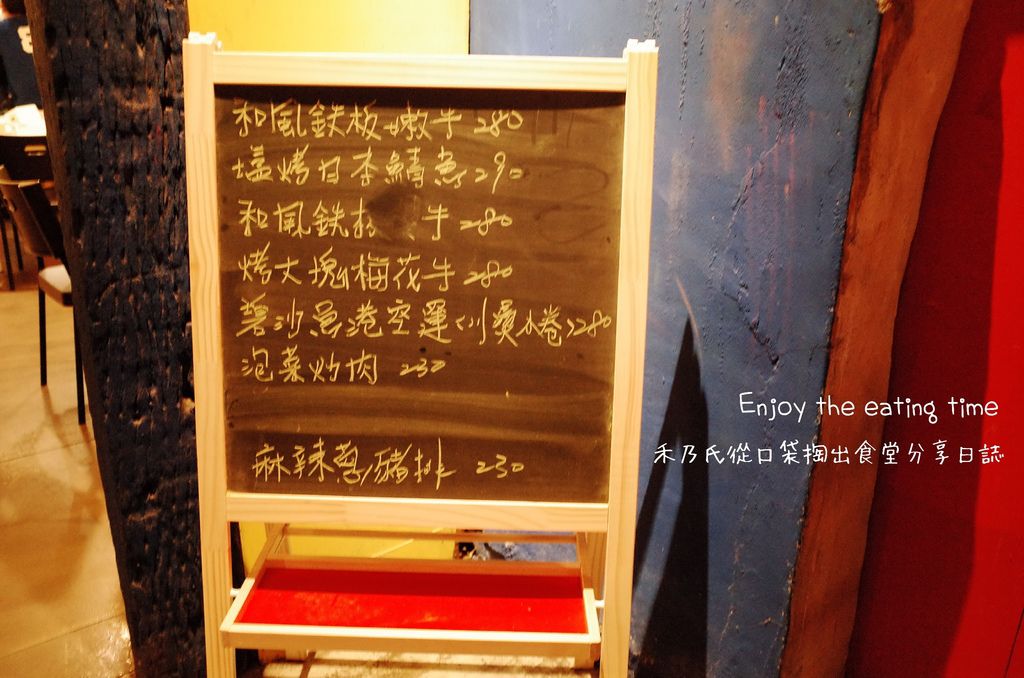 和風鉄板嫩牛 280
塩烤日本鯖魚 290
和風鉄板 牛 280
烤大塊梅花牛 280
碧沙魚港空運<小卷>280
泡菜炒肉 230
麻辣蔥豬排 230
Enjoy the eating time
禾乃氏從口袋掏出食堂分享日誌